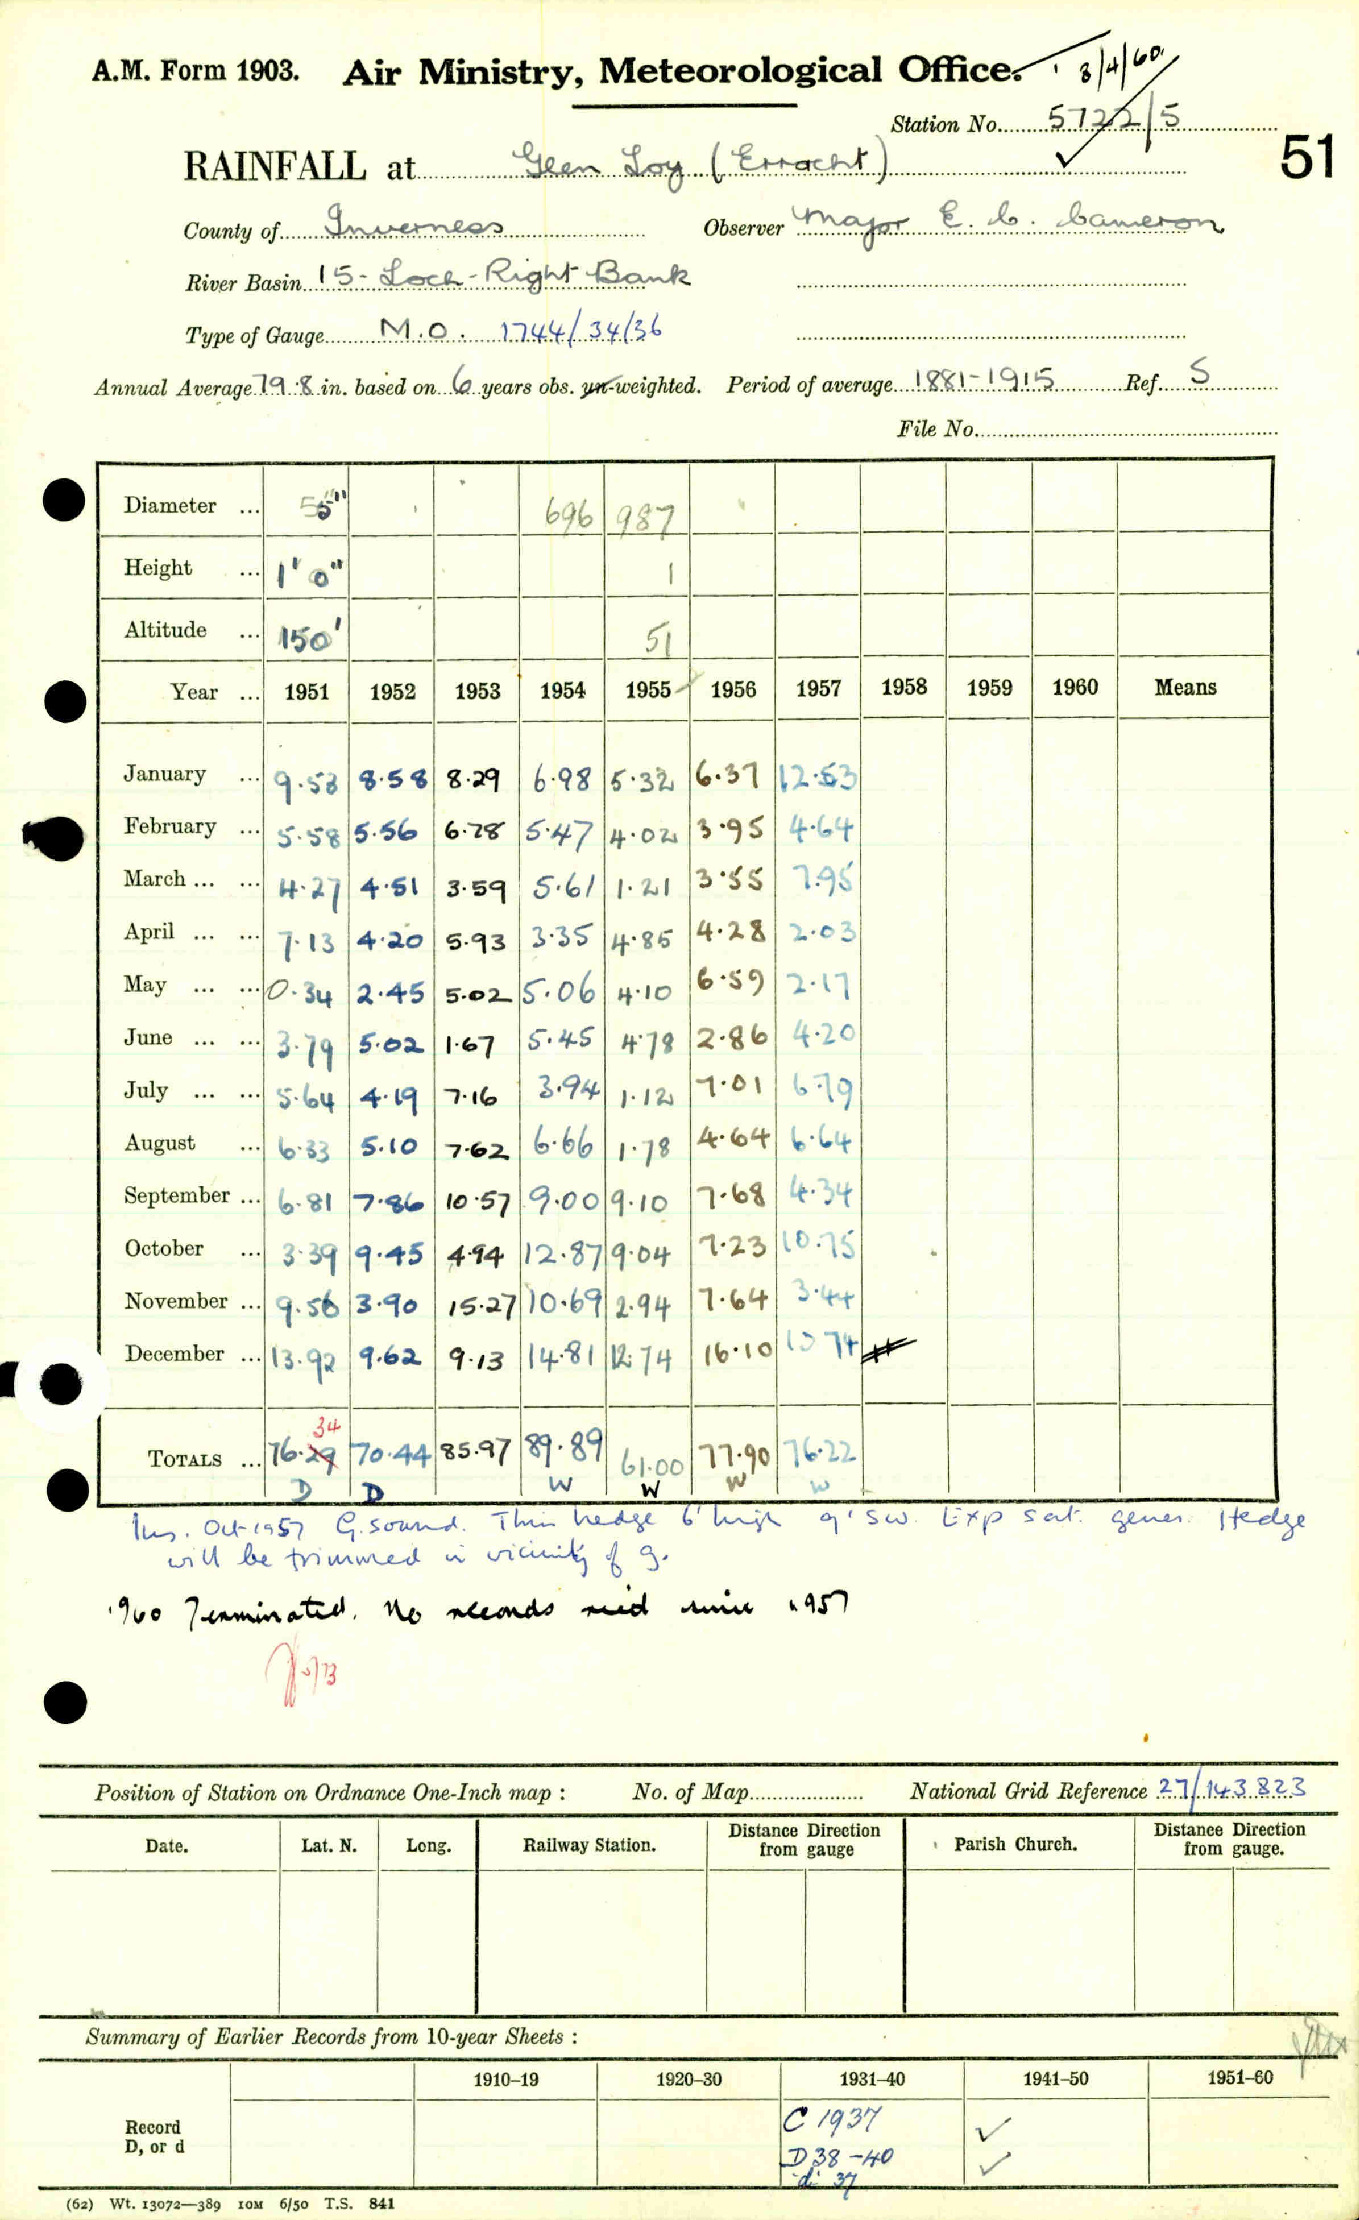 A.M. Form 1903. Air Ministry, Meteorological Office. 8/4/60
Station No. 5722/5
51
RAINFALL at Glen Loy (Erracht)
County of Inverness Observer Major E. C. Cameron
River Basin 15 - Loch - Right Bank
Type of Gauge M.O. 1744/34/36
Annual Average 79.8 in. based on 6 years obs. un-weighted. Period of average 1881-1915 Ref. S
File No.
Diameter ... 5" 696 987
Height ... 1' 0" 1
Altitude ... 150' 51
Year ... 1951 1952 1953 1954 1955 1956 1957 1958 1959 1960 Means
January ... 9.58 8.58 8.29 6.98 5.32 6.37 12.53
February ... 5.58 5.56 6.78 5.47 4.02 3.95 4.64
March ... ... 4.27 4.51 3.59 5.61 1.21 3.55 7.95
April ... ... 7.13 4.20 5.93 3.35 4.85 4.28 2.03
May ... ... 0.34 2.45 5.02 5.06 4.10 6.59 2.17
June ... ... 3.79 5.02 1.67 5.45 4.78 2.86 4.20
July ... ... 5.64 4.19 7.16 3.94 1.12 7.01 6.79
August ... 6.33 5.10 7.62 6.66 1.78 4.64 6.64
September ... 6.81 7.86 10.57 9.00 9.10 7.68 4.34
October ... 3.39 9.45 4.94 12.87 9.04 7.23 10.75
November ... 9.56 3.90 15.27 10.69 2.94 7.64 3.44
December ... 13.92 9.62 9.13 14.81 12.74 16.10 10.74
34
TOTALS ... 76.29 70.44 85.97 89.89 61.00 77.90 76.22
D D W W W W
Ins. Oct 1957 G. sound. Thin hedge 6' high 9' SW. Exp sat. gener. Hedge
will be trimmed in vicinity of g.
1960 Terminated. No records recd since 1957
Position of Station on Ordnance One-Inch map : No. of Map National Grid Reference 27/143823
Date. Lat. N. Long. Railway Station. Distance from Direction gauge Parish Church. Distance from Direction gauge.
Summary of Earlier Records from 10-year Sheets :
1910–19 1920–30 1931–40 1941–50 1951–60
Record D, or d
C 1937 ✓
D 38-40 ✓
di 37
(62) Wt. 13072—389 10M 6/50 T.S. 841